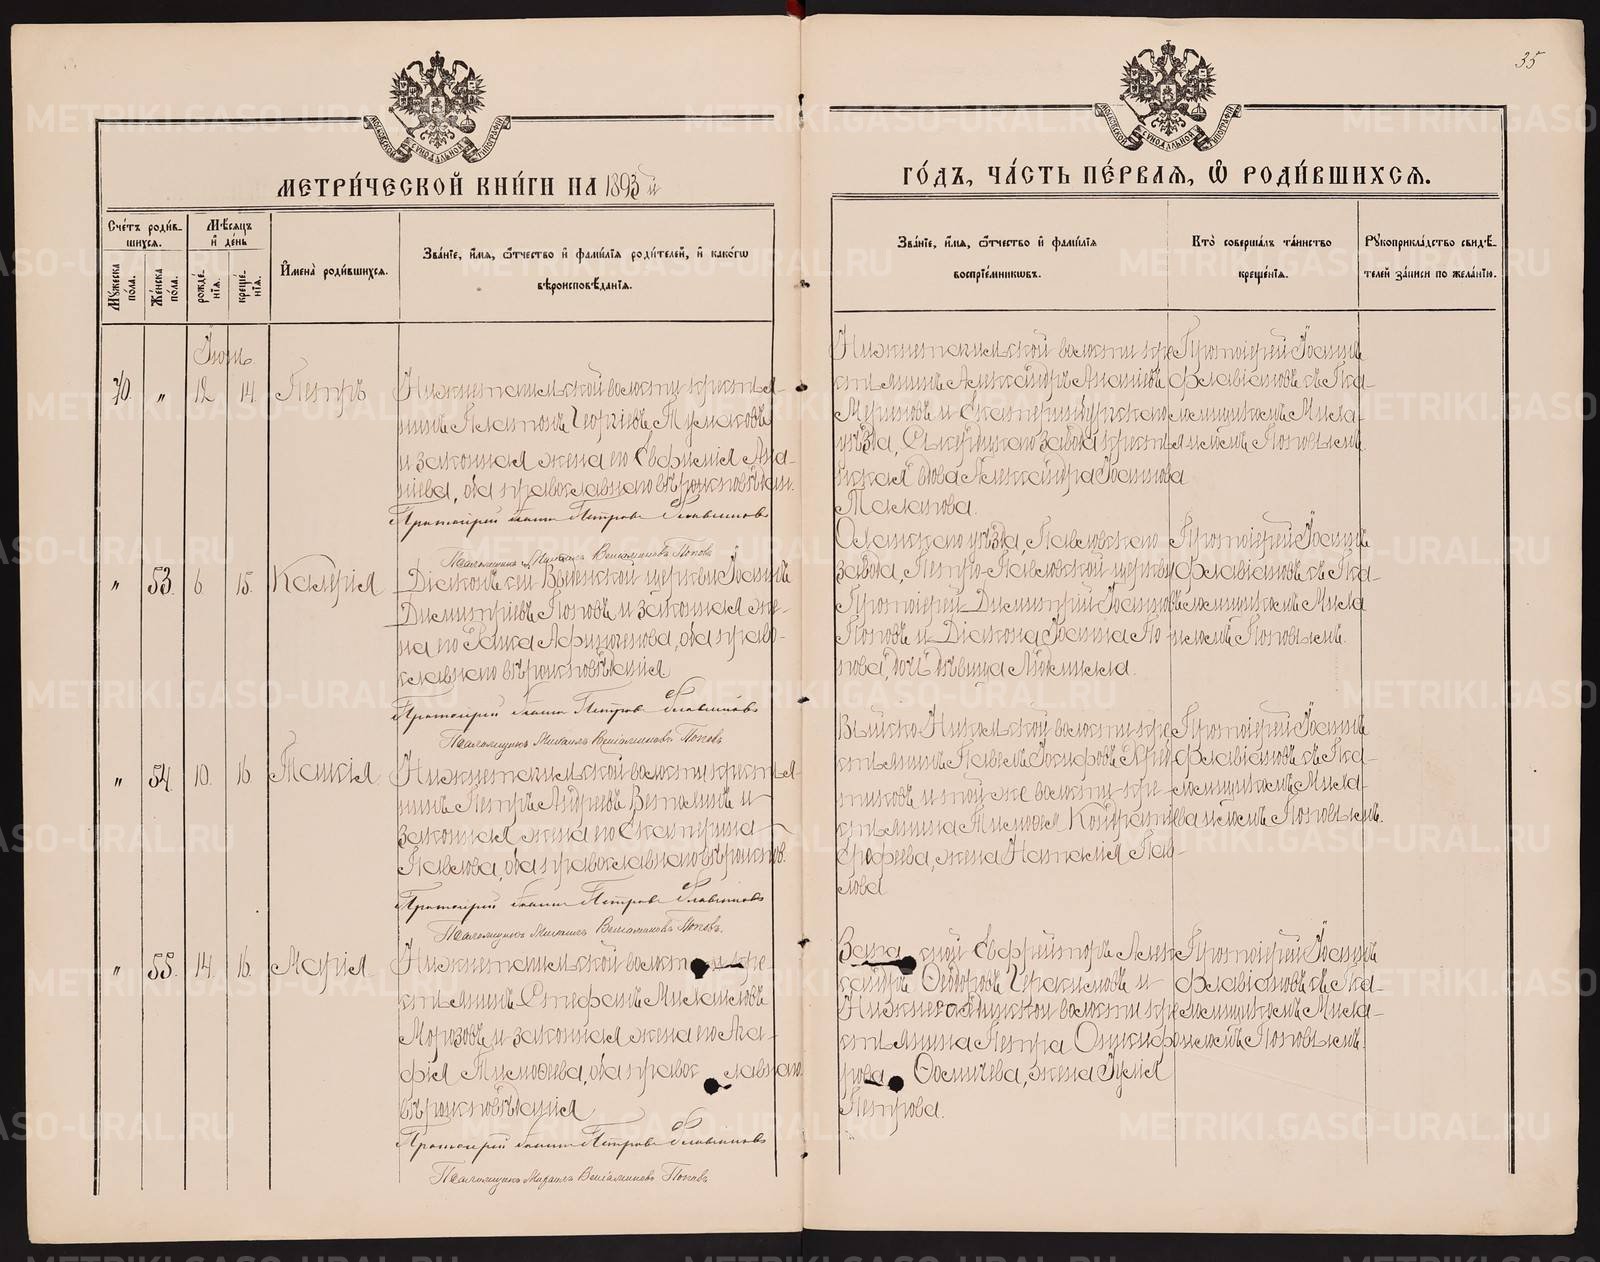 35
МОСКОВСКОЙ СѴНОДАЛЬНОЙ ТИПОГРАФІИ
МОСКОВСКОЙ СѴНОДАЛЬНОЙ ТИПОГРАФІИ
МЕТРИ́ЧЕСКОЙ КНИ́ГИ НА 1893 й
ГО́ДЪ, ЧА́СТЬ ПЕ́РВАѦ, Ѡ҆ РОДИ́ВШИХСѦ.
Сче́тъ роди́в-
шихсѧ.
Мꙋ́жеска по́ла.
Же́нска по́ла.
Мѣ́сѧцъ и҆ де́нь
рожде́-нїѧ.
креще́-нїѧ.
И҆мена̀ роди́вшихсѧ.
Зва́нїе, и҆́мѧ, ѻ҆́тчество и҆ фамѝлїѧ роди́телей, и҆ како́гѡ
вѣроисповѣ́данїѧ.
Зва́нїе, и҆́мѧ, ѻ҆́тчество и҆ фамѝлїѧ
воспрїе́мникѡвъ.
Кто̀ соверша́лъ та́инство
креще́нїѧ.
Рꙋкоприкла́дство свидѣ́-
телей за́писи по жела́нїю.
70. " 12 14 Петръ
Нижнетагильской волости крестья-
нинъ Платонъ Георгіевъ Тумаковъ
и законная жена его Евфимія Ана-
ніева, оба православнаго вѣроисповѣдан.
Протоіерей Іоаннъ Петровъ Флавіановъ
Псаломщикъ Михаилъ Веніаминовъ Поповъ
Нижнетагильской волости кре-
стьянинъ Александръ Ананіевъ
и Екатеринбургскаго
уѣзда, завода крестьян-
ская вдова Александра Іоаннова
Протоіерей Іоаннъ
Флавіановъ съ Пса-
ломщикомъ Миха-
иломъ Поповымъ.
" 53. 6 15. Калерія
Діаконъ сей Выйской церкви Іоаннъ
Димитріевъ Поповъ и законная же-
на его Раиса Афиногенова, оба право-
славнаго вѣроисповѣданія
Протоіерей Іоаннъ Петровъ Флавіановъ
Псаломщикъ Михаилъ Веніаминовъ Поповъ
уѣзда, Павловскаго
завода, Петро-Павловской церкви
Протоіерей Димитрій Іоанновъ
Поповъ и Діакона Іоанна По-
пова, дочь дѣвица Людмилла.
Протоіерей Іоаннъ
Флавіановъ съ Пса-
ломщикомъ Миха-
иломъ Поповымъ.
" 54. 10. 16 Таисія
Нижнетагильской волости крестья-
нинъ Петръ Андреевъ и
законная жена его Екатерина
Павлова, оба православнаго вѣроиспов.
Протоіерей Іоаннъ Петровъ Флавіановъ
Псаломщикъ Михаилъ Веніаминовъ Поповъ.
Выйско-Никольской волости кре-
стьянинъ Павелъ Іосифовъ
и той же волости кре-
стьянина Тимоѳея Кондратіева
Ерофеева, жена Наталія Пав-
лова
Протоіерей Іоаннъ
Флавіановъ съ Пса-
ломщикомъ Миха-
иломъ Поповымъ.
" 55. 14. 16. Марія
Нижнетагильской волости кре-
стьянинъ Стефанъ Михаиловъ
Морозовъ и законная жена его Ага-
фія Тимоѳеева, оба православнаго
вѣроисповѣданія
Протоіерей Іоаннъ Петровъ Флавіановъ
Псаломщикъ Михаилъ Веніаминовъ Поповъ
Ефрейторъ Алек-
сандръ Ѳедоровъ и
волости кре-
стьянина Петра
жена Іулія
Петрова.
Протоіерей Іоаннъ
Флавіановъ съ Пса-
ломщикомъ Миха-
иломъ Поповымъ.
METRIKI.GASO-URAL.RU